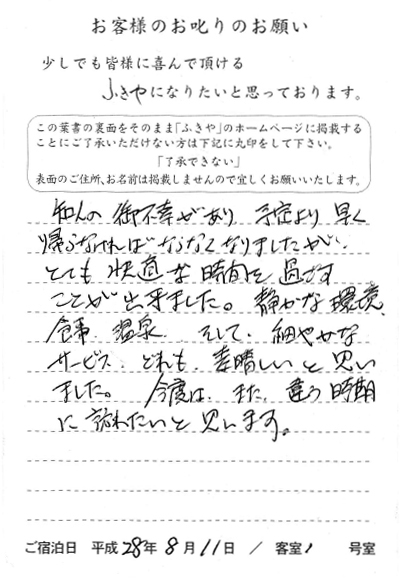 お客様のお叱りのお願い
少しでも皆様に喜んで頂ける
ふきやになりたいと思っております。
この葉書の裏面をそのまま「ふきや」のホームページに掲載する
ことにご了承いただけない方は下記に丸印をして下さい。
「了承できない」
表面のご住所、お名前は掲載しませんので宜しくお願いいたします。
知人の御不幸があり 予定より早く
帰らなければならなくなりましたが、
とても快適な時間を過ごす
ことが出来ました。静かな環境、
食事 温泉 そして、細やかな
サービス、どれも、素晴しいと思い
ました。 今度は、また、違う時期
に訪れたいと思います。
ご宿泊日 平成28年8月11日 / 客室 号室